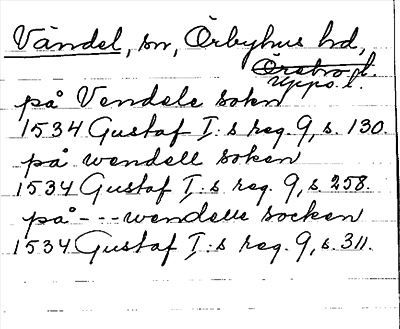 Vändel, sn, Örbyhus hd,
Örebro l.
Upps. l.
på Vendels sokn
1534 Gustaf I:s reg. 9, s. 130.
på wendell soken
1534 Gustaf I:s reg. 9, s. 258.
på --- wendelle socken
1534 Gustaf I:s reg. 9, s. 311.